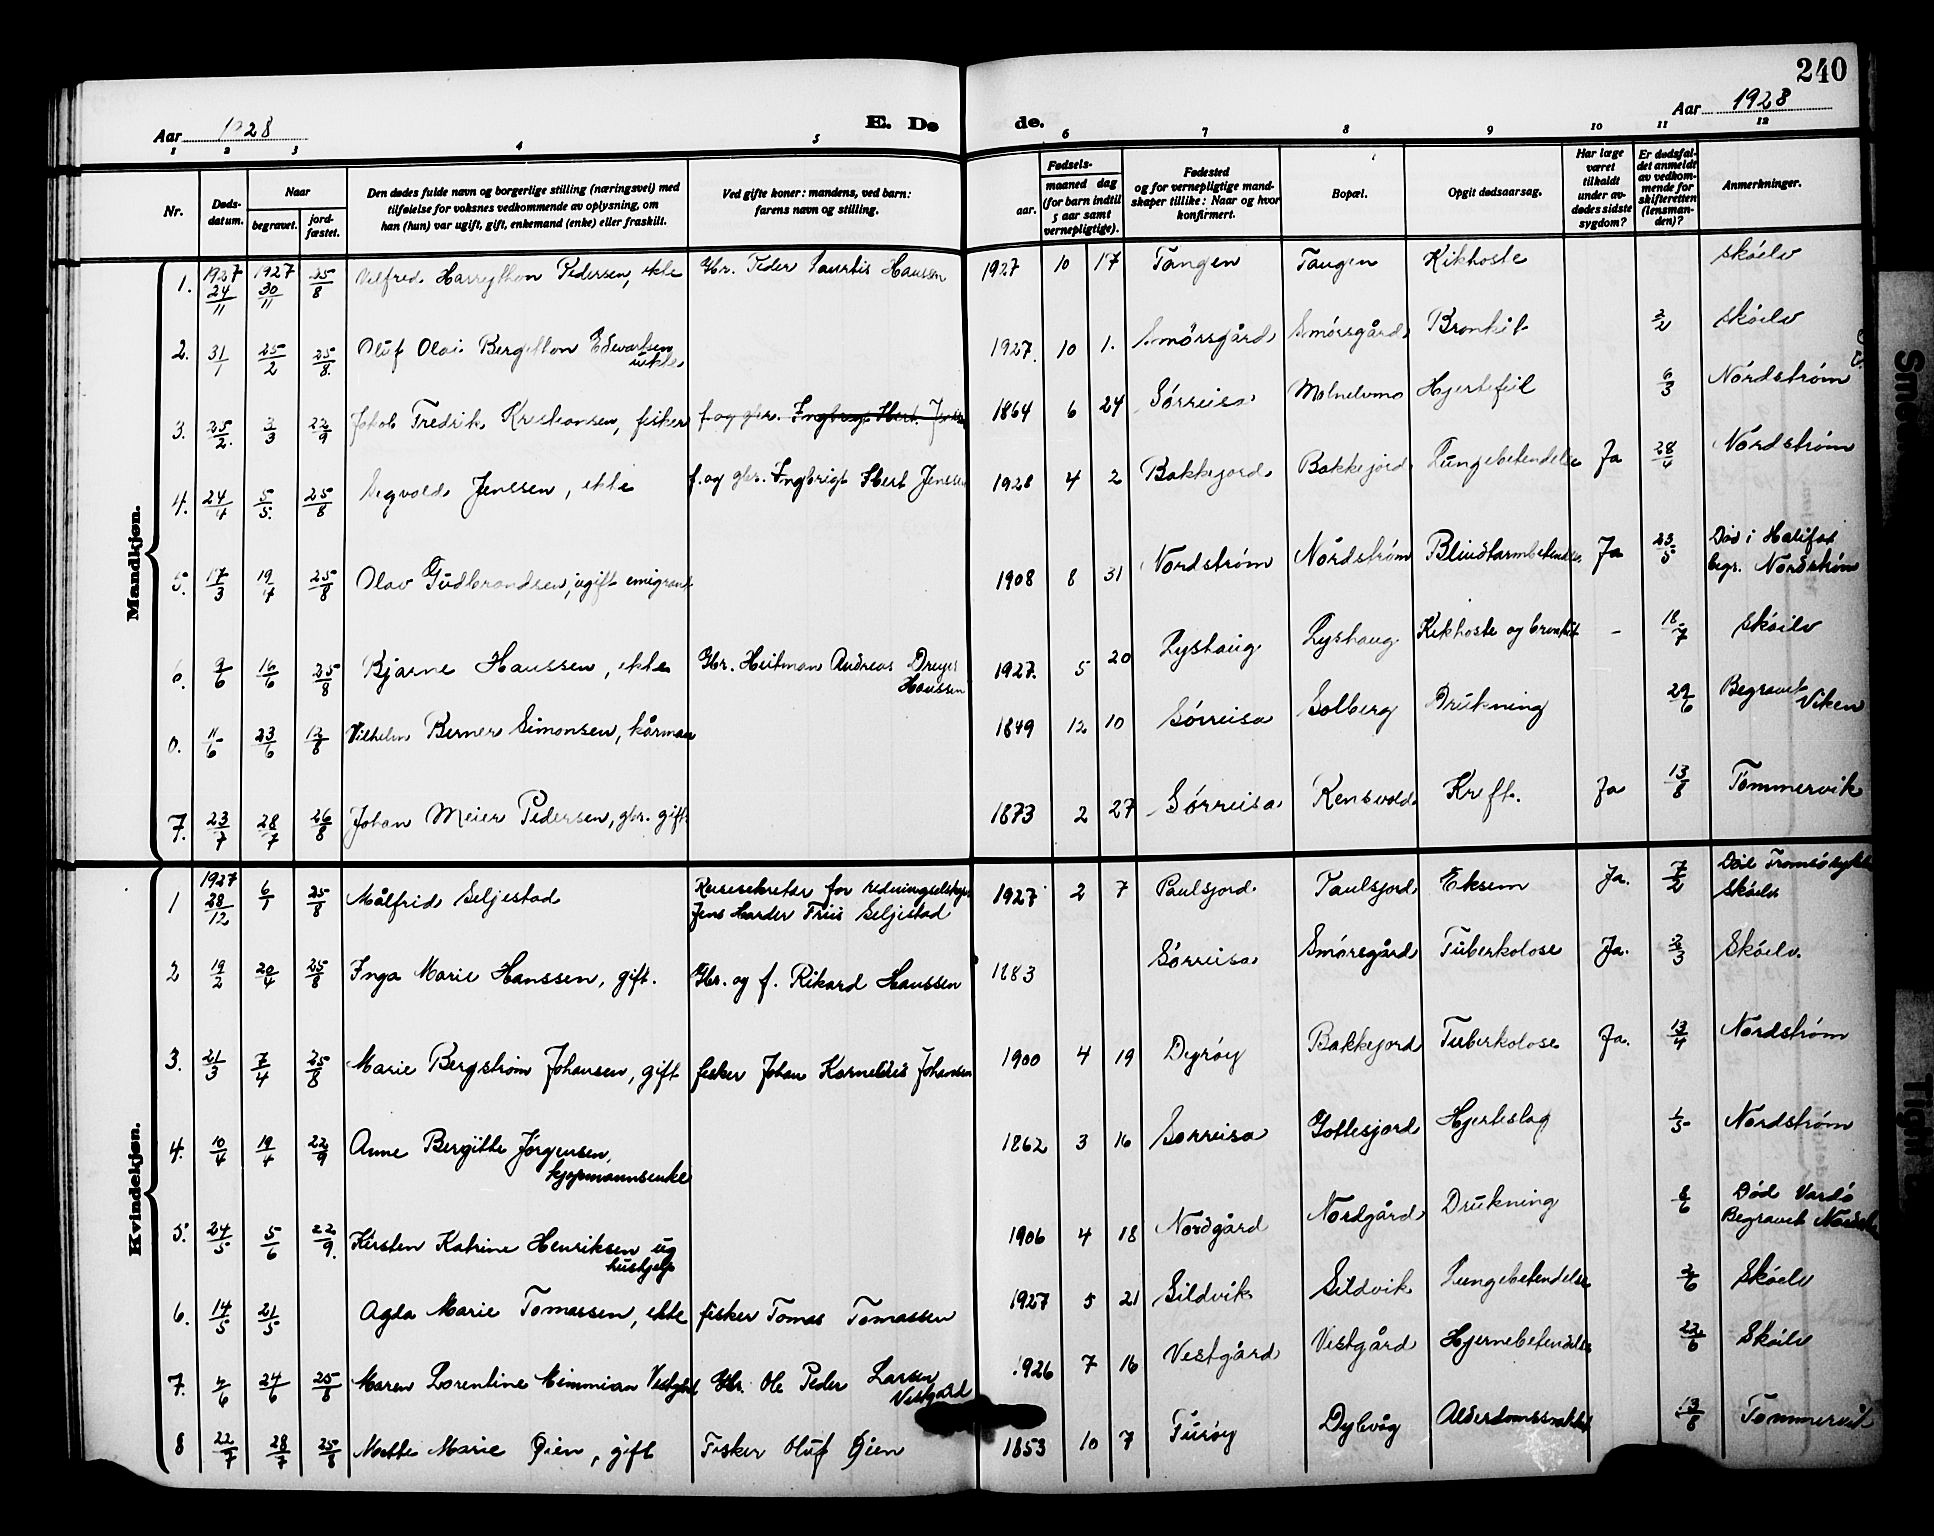 240
Aar 1928
E. Døde.
Aar 1928
1 2 3 4 5 6 7 8 9 10 11 12
Nr.
Dødsdatum.
Naar
begravet.
jordfæstet.
Den dødes fulde navn og borgerlige stilling (næringsvei) med
tilføielse for voksnes vedkommende av oplysning, om
han (hun) var ugift, gift, enkemand (enke) eller fraskilt.
Ved gifte koner: mandens, ved barn:
farens navn og stilling.
Fødsels-
aar.
maaned dag
(for barn indtil
5 aar samt
vernepligtige).
Fødested
og for vernepligtige mand-
skaper tillike: Naar og hvor
konfirmert.
Bopæl.
Opgit dødsaarsag.
Har læge
været
tilkaldt
under av-
dødes sidste
sygdom?
Er dødsfal-
det anmeldt
av vedkom-
mende for
skifteretten
(lensman-
den)?
Anmerkninger.
Mandkjøn.
1. 1927 24/11 1927 30/11 25/8 Vilfred Harrython Pedersen, ekte Gbr. Peder Laurtis Hansen 1927 10 17 Tangen Tangen Kikhoste Skøelv
2. 31/1 25/2 25/8 Oluf Olai Bergitton Edvartsen uekte 1927 10 1. Smørsgård Smørsgård Bronkit 2/2 Skøelv
3. 25/2 3/3 22/9 Jakob Fredrik Kristiansen, fisker f. og gbr. Ingbrigt Hert. 1864 6 24 Sørreisa Molnelvmo Hjertefeil 6/3 Nordstrøm
4. 24/4 5/5 25/8 Sigvald Jenssen, ekte f. og gbr. Ingbrigt Hert Jenssen 1928 4 2 Bakkejord Bakkejord Lungebetendelse Ja 28/4 Nordstrøm
5. 17/3 19/4 25/8 Olav Gudbrandsen, ugift emigrant 1908 8 31 Nordstrøm Nordstrøm Blindtarmbetendelse Ja 23/5 Død i Halifax
begr. Nordstrøm
6. 9/6 16/6 25/8 Bjarne Hanssen, ekte Gbr. Heitman Andreas Dreyer
Hanssen 1927. 5 20 Lyshaug Lyshaug Kikhoste og bronkit - 18/7 Skøelv
0. 11/6 23/6 12/8 Vilhelm Berner Simonsen, kårmann 1849 12 10 Sørreisa Solberg Drukning 29/6 Begravet
Viken
7. 23/7 28/7 26/8 Johan Meier Pedersen, gbr. gift 1873 2 27 Sørreisa Rensvold Kreft. Ja 13/8 Tømmervik
Kvindekjøn.
1 1927 28/12 6/1 25/8 Målfrid Seljestad Reisesekretær for redningsselskap
Jens Harder Friis Seljestad 1927 2 7 Paulsjord Paulsjord Eksem Ja. 7/2 Død Tromsø
Skøelv
2 19/2 20/4 25/8 Inga Marie Hanssen, gift. Gbr. og f. Rikard Hanssen 1883 Sørreisa Smørsgård Tuberkolose Ja. 3/3 Skøelv.
3. 21/3 7/4 25/8 Marie Bergstrøm Johansen, gift fisker Johan Kornelius Johansen 1900 4 19 Dyrøy Bakkejord Tuberkolose Ja. 13/4 Nordstrøm
4. 10/4 19/4 22/9 Anne Bergitte Jørgensen,
kjøpmannsenke 1862 3 16 Sørreisa Gottesjord Hjerteslag 1/5 Nordstrøm
5. 24/5 5/6 22/9. Kirsten Katrine Henriksen ug
hushjelp 1906 4 18 Nordgård Nordgård Drukning 8/6 Død Vardø
Begravet
6. 14/5 21/5 Agda Marie Tomassen, ekte fisker Tomas Tomassen 1927 5 21 Sildvik Sildvik Lungebetendelse 2/6 Skøelv
7. 24/6 25/8 Maren Lorentine Mimmian Vestgård Gbr. Ole Peder Larsen
Vestgård 1926 7 16 Vestgård Vestgård Hjernebetendelse 22/6 Skøelv
8 22/7 28/7 25/8 Mette Marie Øien, gift Fisker Oluf Øien 1853 10 7 Turøy Dylvåg 13/8 Tømmervik